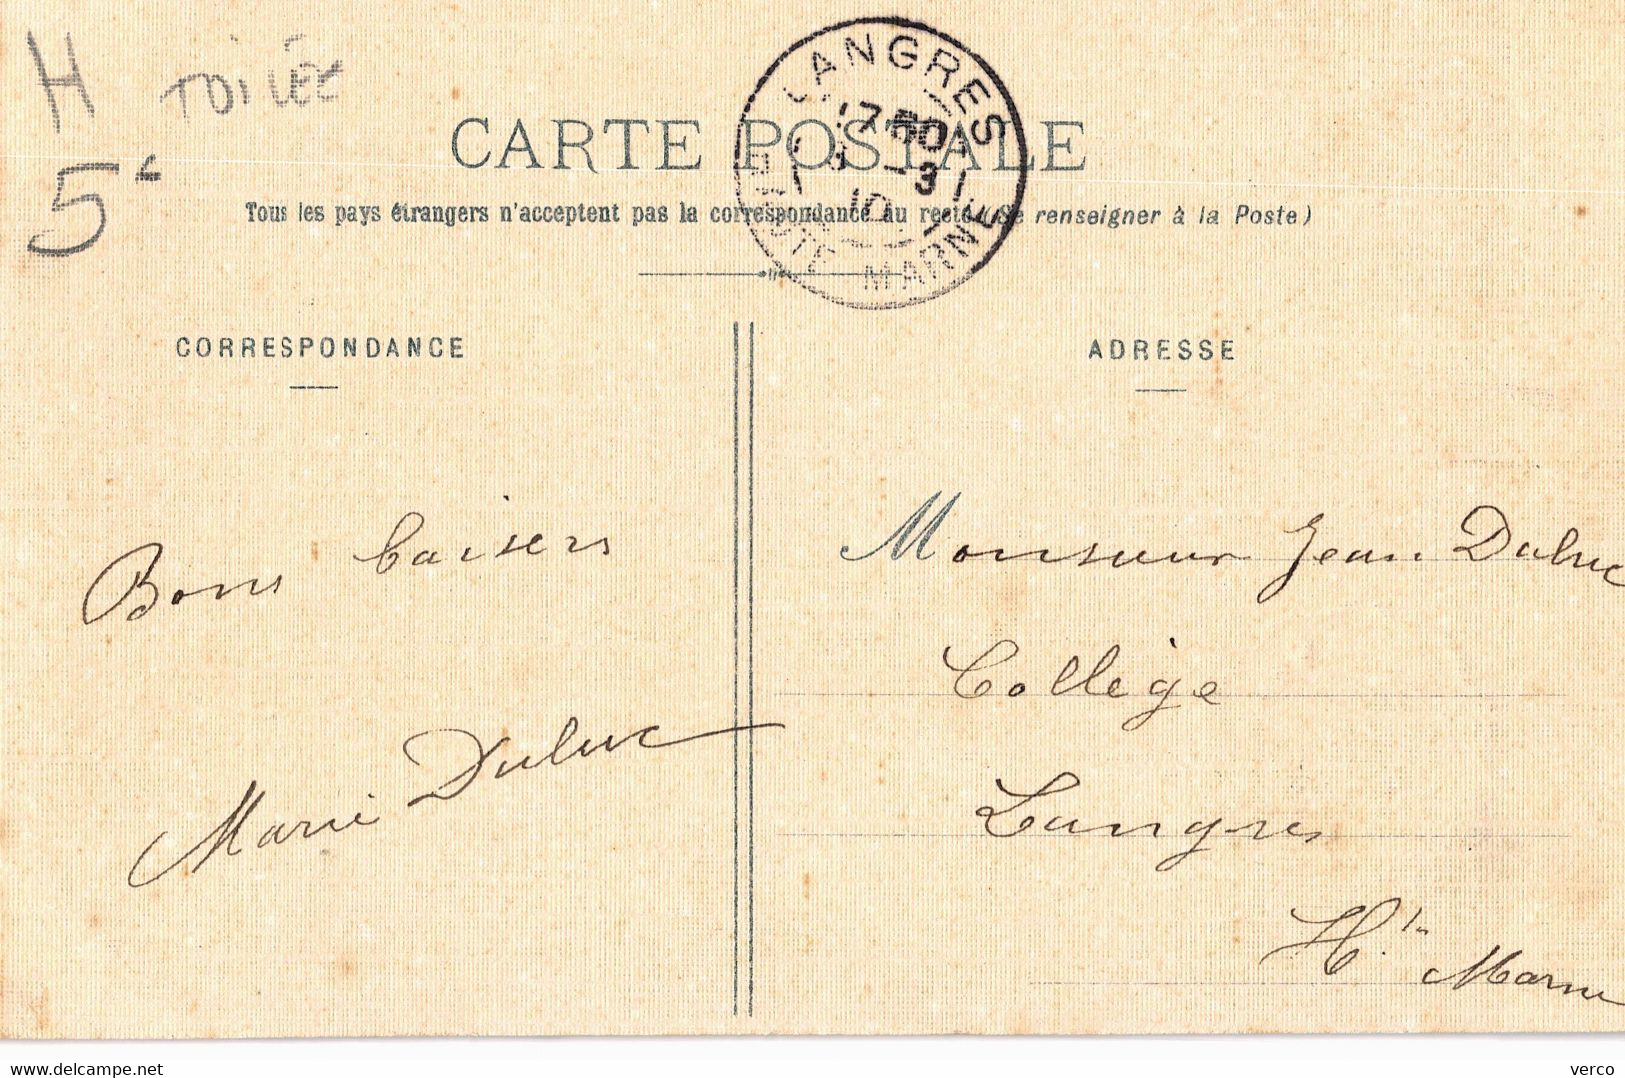 H TOILÉE
5
CARTE POSTALE
LANGRES
17 30
3
10
HAUTE MARNE
Tous les pays étrangers n'acceptent pas la correspondance au recto (Se renseigner à la Poste)
CORRESPONDANCE
ADRESSE
Bons baisers
Marie Duluc
Monsieur Jean Duluc
Collège
Langres
Hte Marne
www.delcampe.net
verco